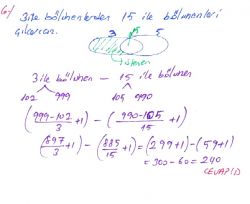 6-) 3 ile bölünenlerden 15 ile bölünenleri
çıkarırız.
3 15 5
istenen
3 ile bölünen - 15 ile bölünen
102 999 105 990
(999-102/3 +1) - (990-105/15 +1)
(897/3 +1) - (885/15 +1) = (299+1) - (59+1)
= 300-60 = 240
CEVAP: D